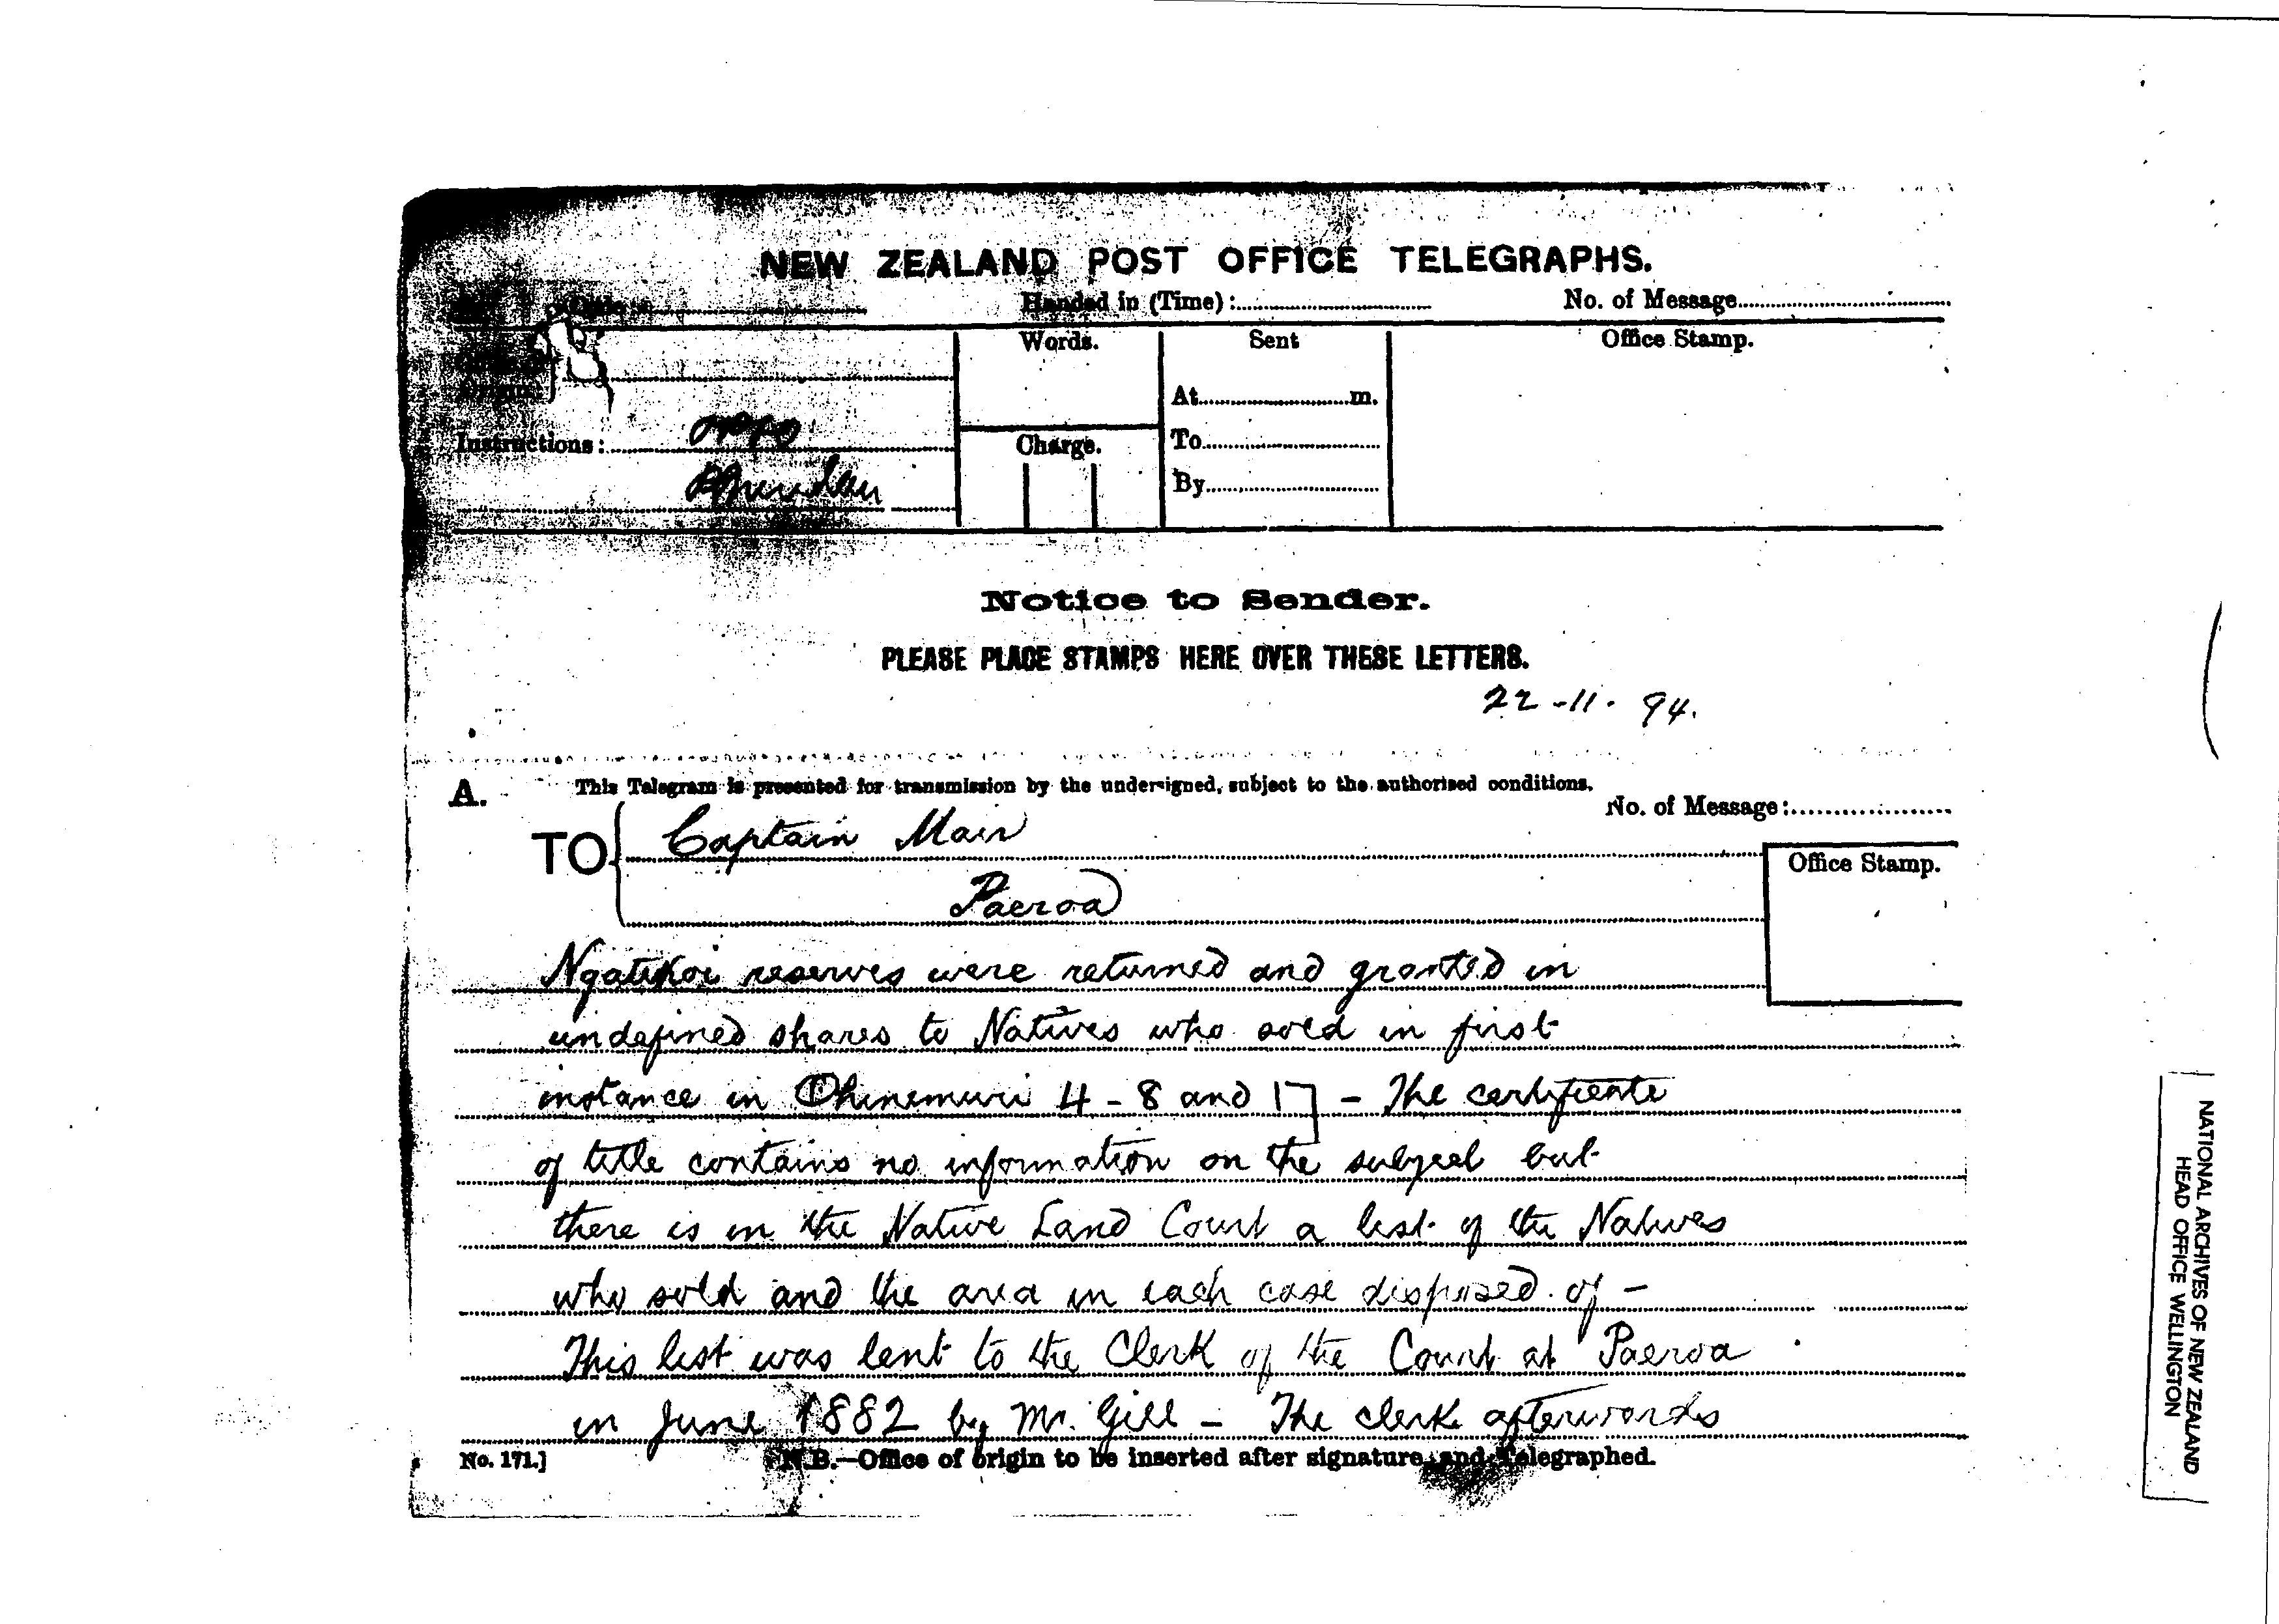 NEW ZEALAND POST OFFICE TELEGRAPHS.
Handed in (Time):
No. of Message
Words.
Sent
Office Stamp.
At m.
Instructions:
Charge.
To
By
Notice to Sender.
PLEASE PLACE STAMPS HERE OVER THESE LETTERS.
22-11-94.
A.
This Telegram is presented for transmission by the undersigned, subject to the authorised conditions.
No. of Message:
TO Captain Mair
Paeroa
Office Stamp.
Ngatikoi reserves were returned and granted in
undefined shares to Natives who sold in first
instance in Ohinemuri 4-8 and 17 - The certificate
of title contains no information on the subject but
there is in the Native Land Court a list of the Natives
who sold and the area in each case disposed of -
This list was lent to the Clerk of the Court at Paeroa
in June 1882 by Mr. Gill - The clerk afterwards
No. 171.]
N.B.—Office of origin to be inserted after signature and Telegraphed.
NATIONAL ARCHIVES OF NEW ZEALAND
HEAD OFFICE WELLINGTON